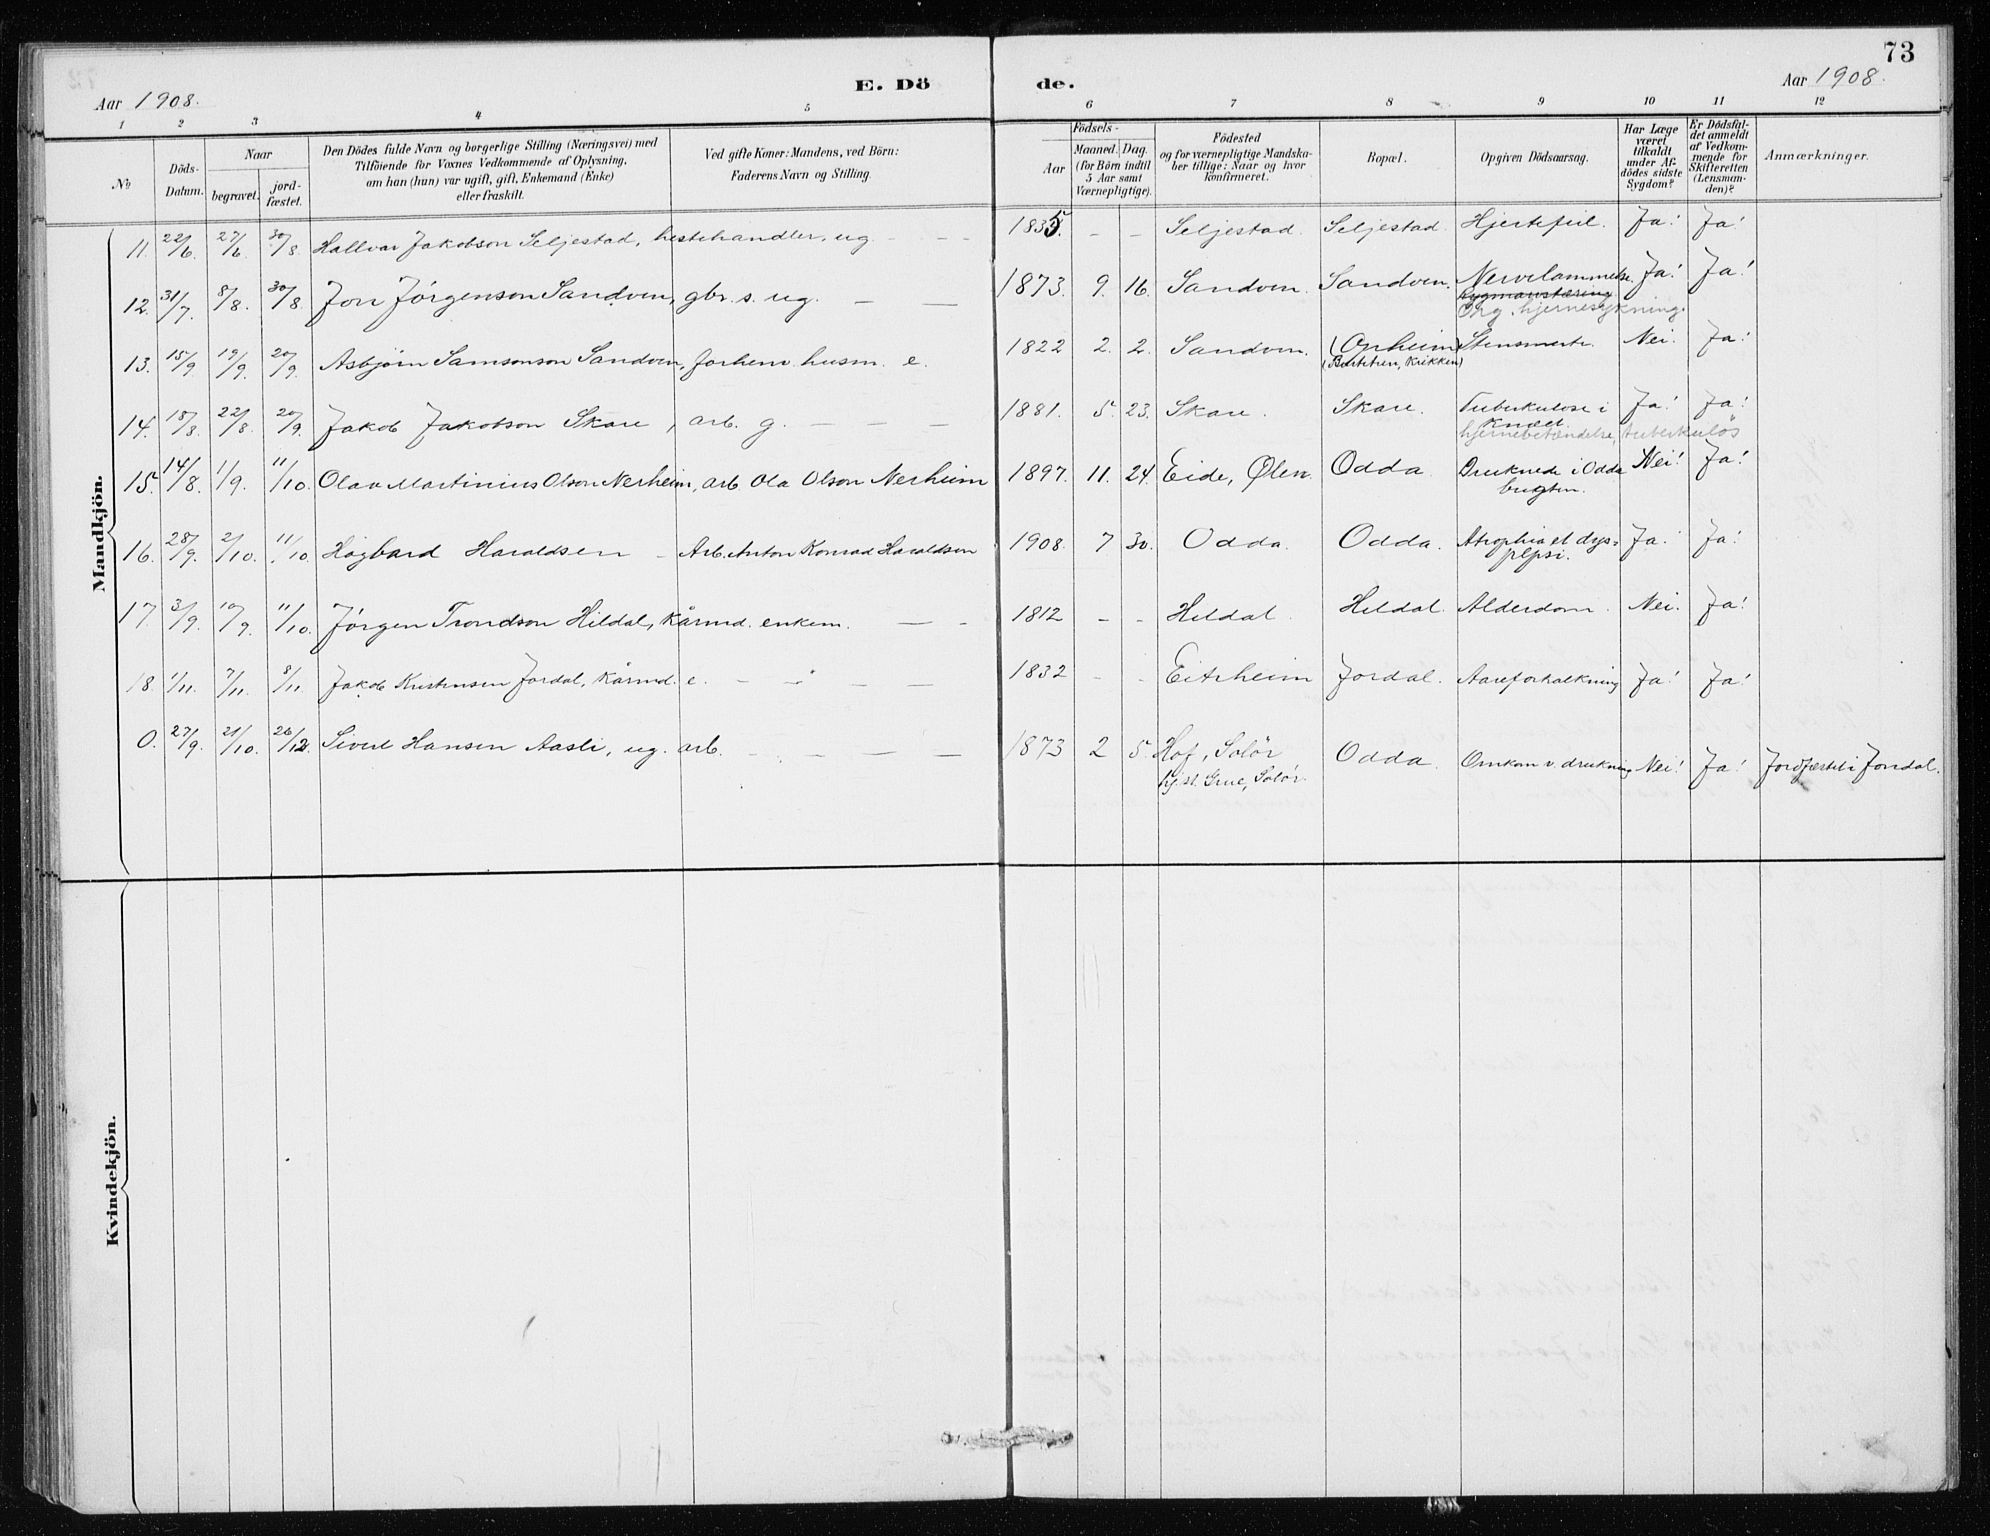 73
E. Dö de.
Aar 1908. Aar 1908.
1 2 3 4 5 6 7 8 9 10 11 12
№
Döds-Datum.
Naar
begravet.
jord-fæstet.
Den Dödes fulde Navn og borgerlige Stilling (Næringsvei) med
Tilföiende for Voxnes Vedkommende af Oplysning,
om han (hun) var ugift, gift, Enkemand (Enke)
eller fraskilt.
Ved gifte Koner: Mandens, ved Börn:
Faderens Navn og Stilling.
Födsels-
Aar
Maaned. Dag.
(for Börn indtil
5 Aar samt
Værnepligtige).
Födested
og for værnepligtige Mandska-
ber tillige: Naar og hvor
konfirmeret.
Bopæl.
Opgiven Dödsaarsag.
Har Læge
været
tilkaldt
under Af-
dödes sidste
Sygdom?
Er Dödsfal-
det anmeldt
af Vedkom-
mende for
Skifteretten
(Lensman-
den)?
Anmærkninger.
Mandkjön.
11. 22/6. 27/6. 30/8. Hallvar Jakobson Seljestad, hestehandler, ug. — — 1835. — — Seljestad. Seljestad. Hjertefeil. Ja! Ja!
12. 31/7. 8/8. 30/8. Jon Jörgenson Sandven, gbr. s. ug. — — 1873. 9. 16. Sandven. Sandven. Nervelammelse. Ja! Ja!
Org. hjernesykning.
13. 15/9. 19/9. 20/9. Asbjörn Samsonson Sandven, forhenv. husm. e. 1822 2. 2. Sandven. (Opheim) Nei. Ja!
14. 18/8. 22/8. 20/9. Jakob Jakobson Skare, arb. g. — — — 1881. 5. 23. Skare. Skare. Tuberkulose i Ja! Ja!
knæet.
hjernebetændelse, tuberkulös
15. 14/8. 1/9. 11/10. Olav Martinius Olson Nerheim, arb. Ola Olson Nerheim 1897. 11. 24. Eide, Ølen. Odda Druknede i Odda Nei! Ja!
bugten.
16. 28/9. 2/10. 11/10. Hagbard Haraldsen — Arb. Anton Konrad Haraldsen 1908. 7 30. Odda. Odda. Atrophia et dys= Ja. Ja!
pepsi.
17. 3/9. 10/9. 11/10. Jørgen Trondson Hildal, kårmd. enkem. — — 1812 — — Hildal. Hildal. Alderdom. Nei. Ja!
18. 1/11. 7/11. 8/11. Jakob Kristensen Jordal, kårmd. e. — — — — 1832 — — Eitrheim Jordal. Aareforkalkning Ja! Ja!
0. 27/9. 21/10. 26/12. Sivert Hansen Aasli, ug. arb. — — — — 1873 2 5. Hof, Solör Odda. Omkom v. drukning. Nei! Ja! Jordfæstet i Jondal.
hj.st. Grue, Solör.
Kvindekjön.